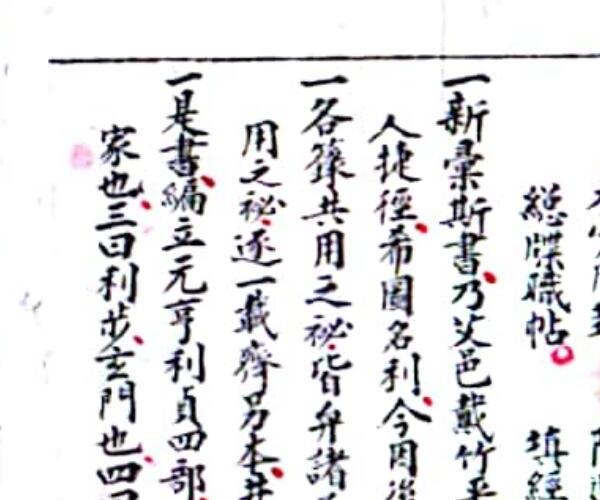 總牒職帖 填
一新彙斯書乃父邑戴竹
人捷徑希圖名利今因
一各籙共用之祕皆弁諸
用之祕逐一載齊另本
一是書編立元亨利貞四部
家也三曰利步玄門也四